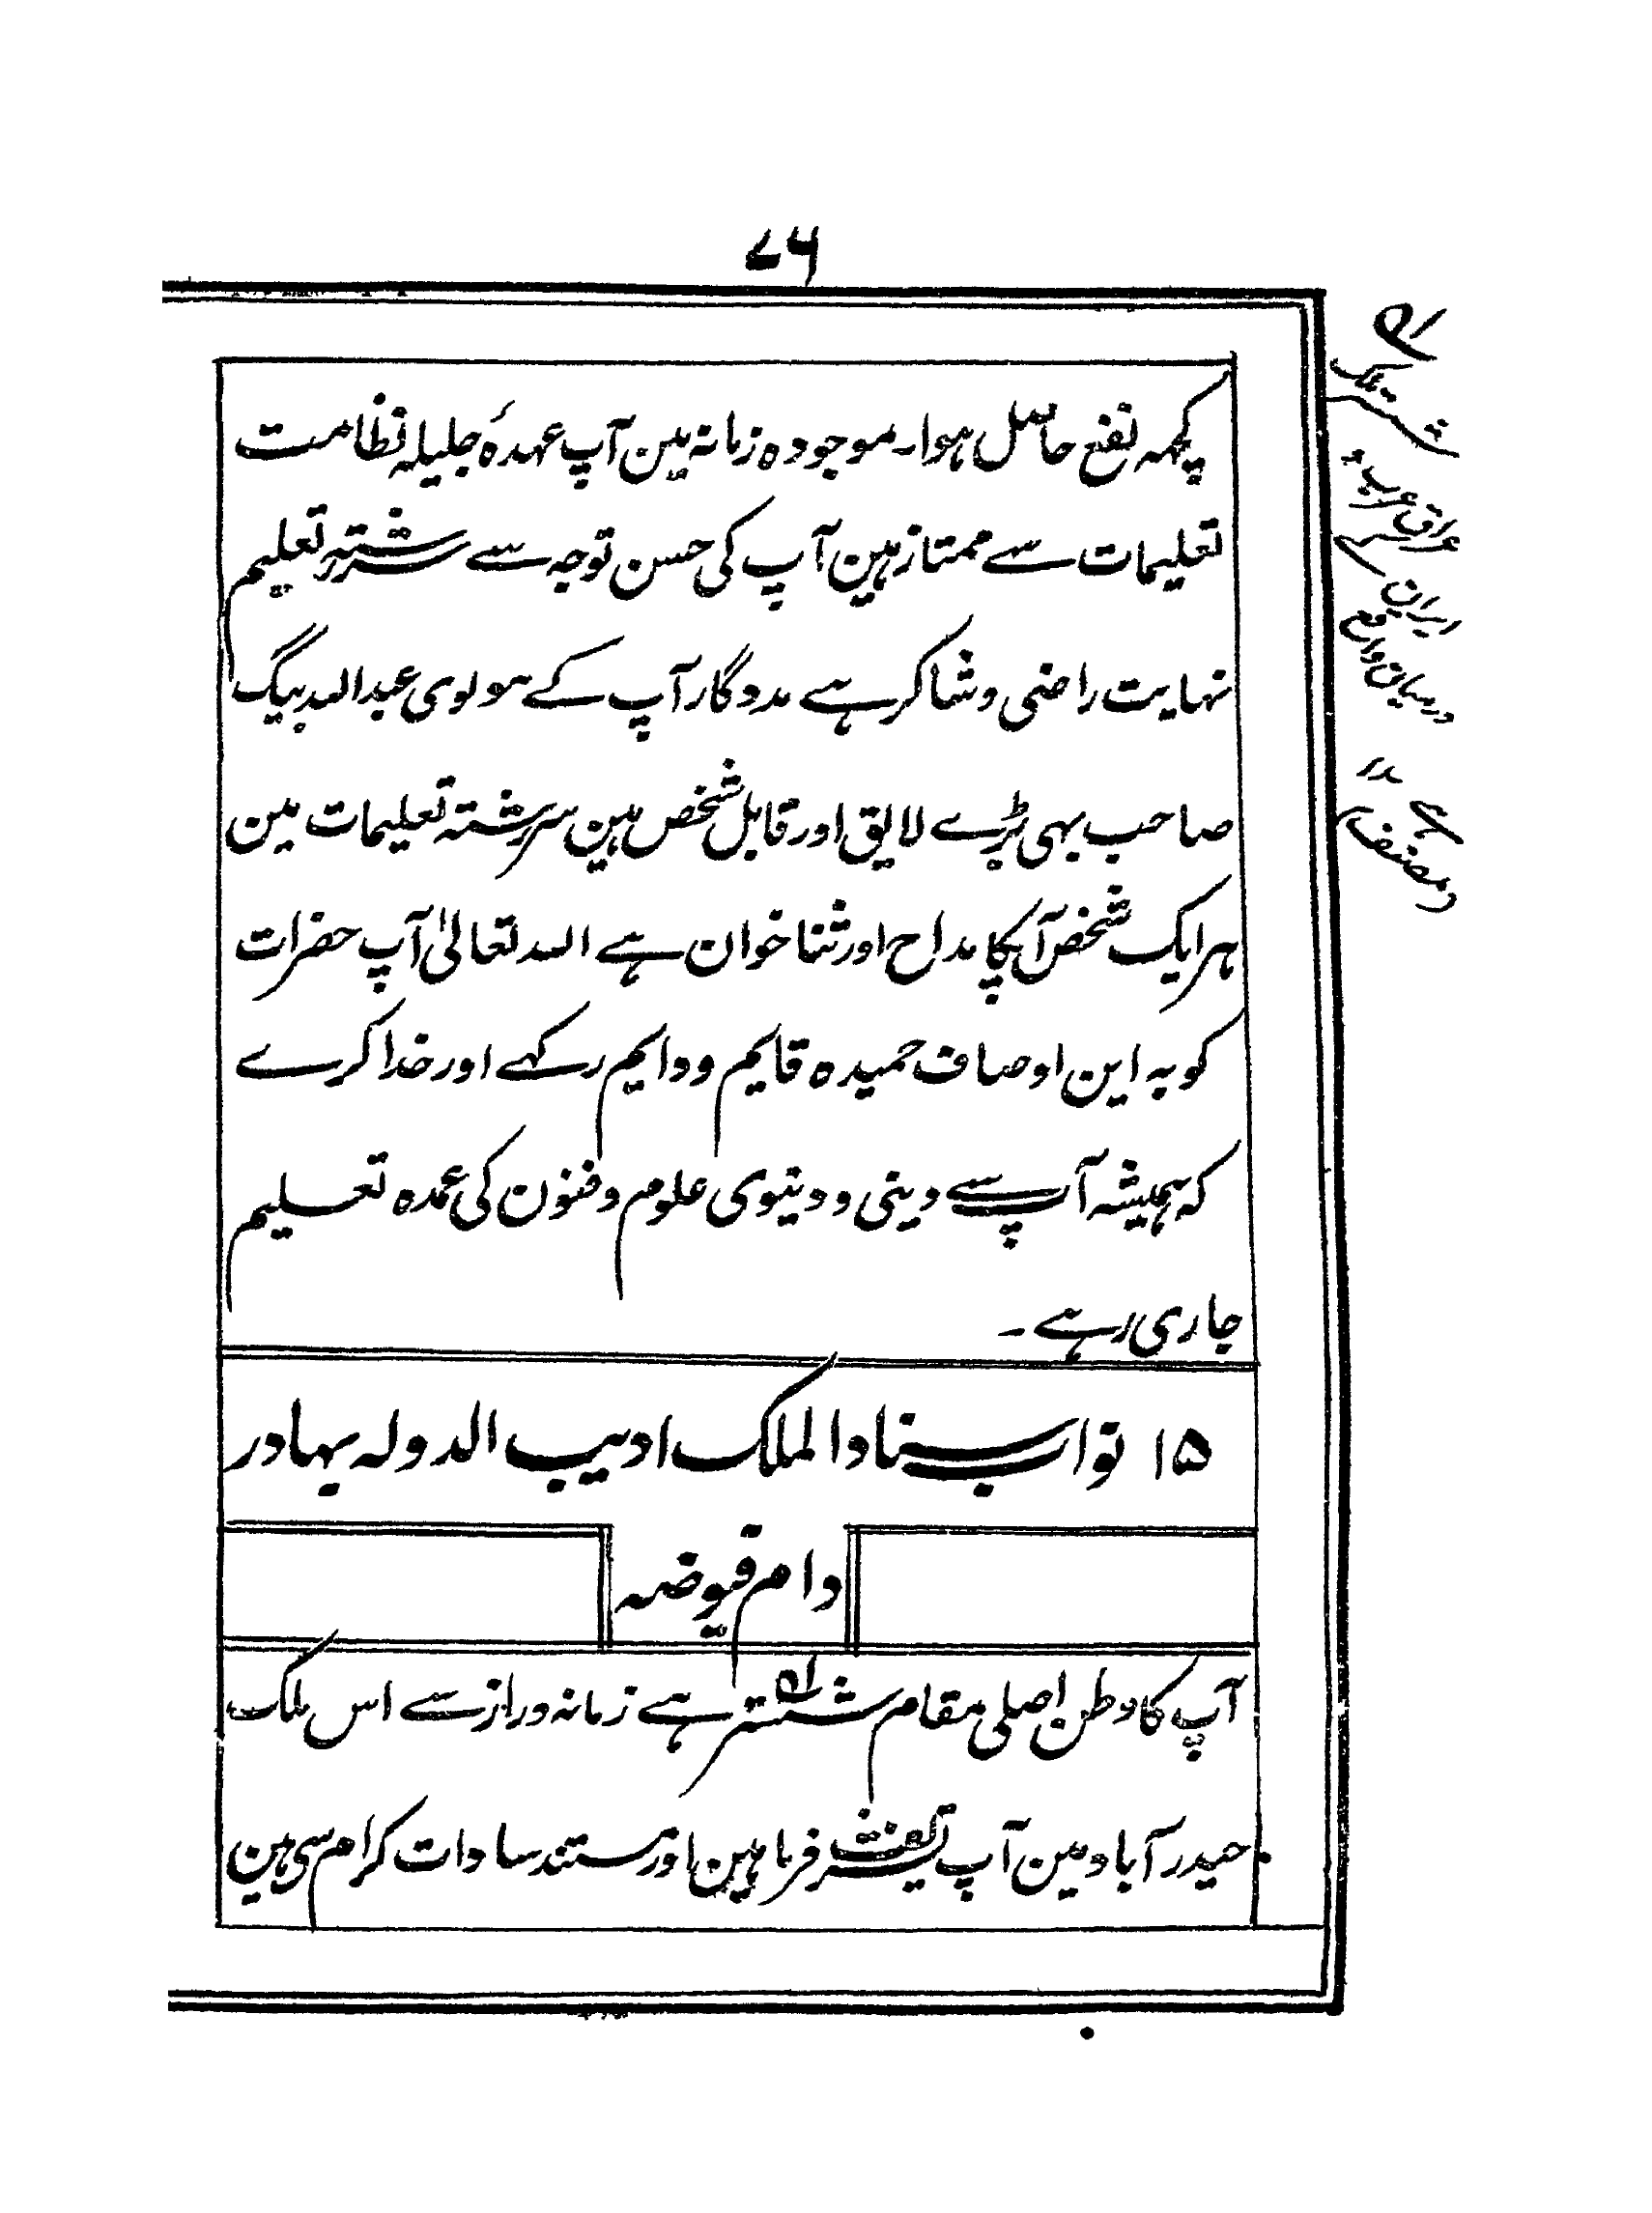 ۷۶
کچہہ نفع حاصل ہوا۔ موجودہ زمانہ مین آپ عہدۂ جلیلہ نظامت
تعلیمات سے ممتاز ہین آپ کی حسن توجہ سے سررشتہ تعلیم
نہایت راضی و شاکر ہے مددگار آپ کے مولوی عبداللہ بیگ
صاحب بہی بڑے لایق اور قابل شخص ہین سررشتہ تعلیمات مین
ہر ایک شخص آپکا مداح اور ثنا خوان ہے اللہ تعالیٰ آپ حضرات
کو بہ این اوصاف حمیدہ قایم و دایم رکہے اور خدا کرے
کہ ہمیشہ آپ سے دینی و دنیوی علوم و فنون کی عمدہ تعلیم
جاری رہے ۔
۱۵ نواب سناد الملک ادیب الدولہ بہادر
دام فیوضہ
آپ کا وطن اصلی مقام شستر ہے زمانہ دراز سے اس ملک
حیدرآباد مین آپ تشریف فرما ہین اور مستند سادات کرام سی ہین
شستر ملک
عراق عرب و
ایران
درمیان واقع
ہے ۱۲
مصنف